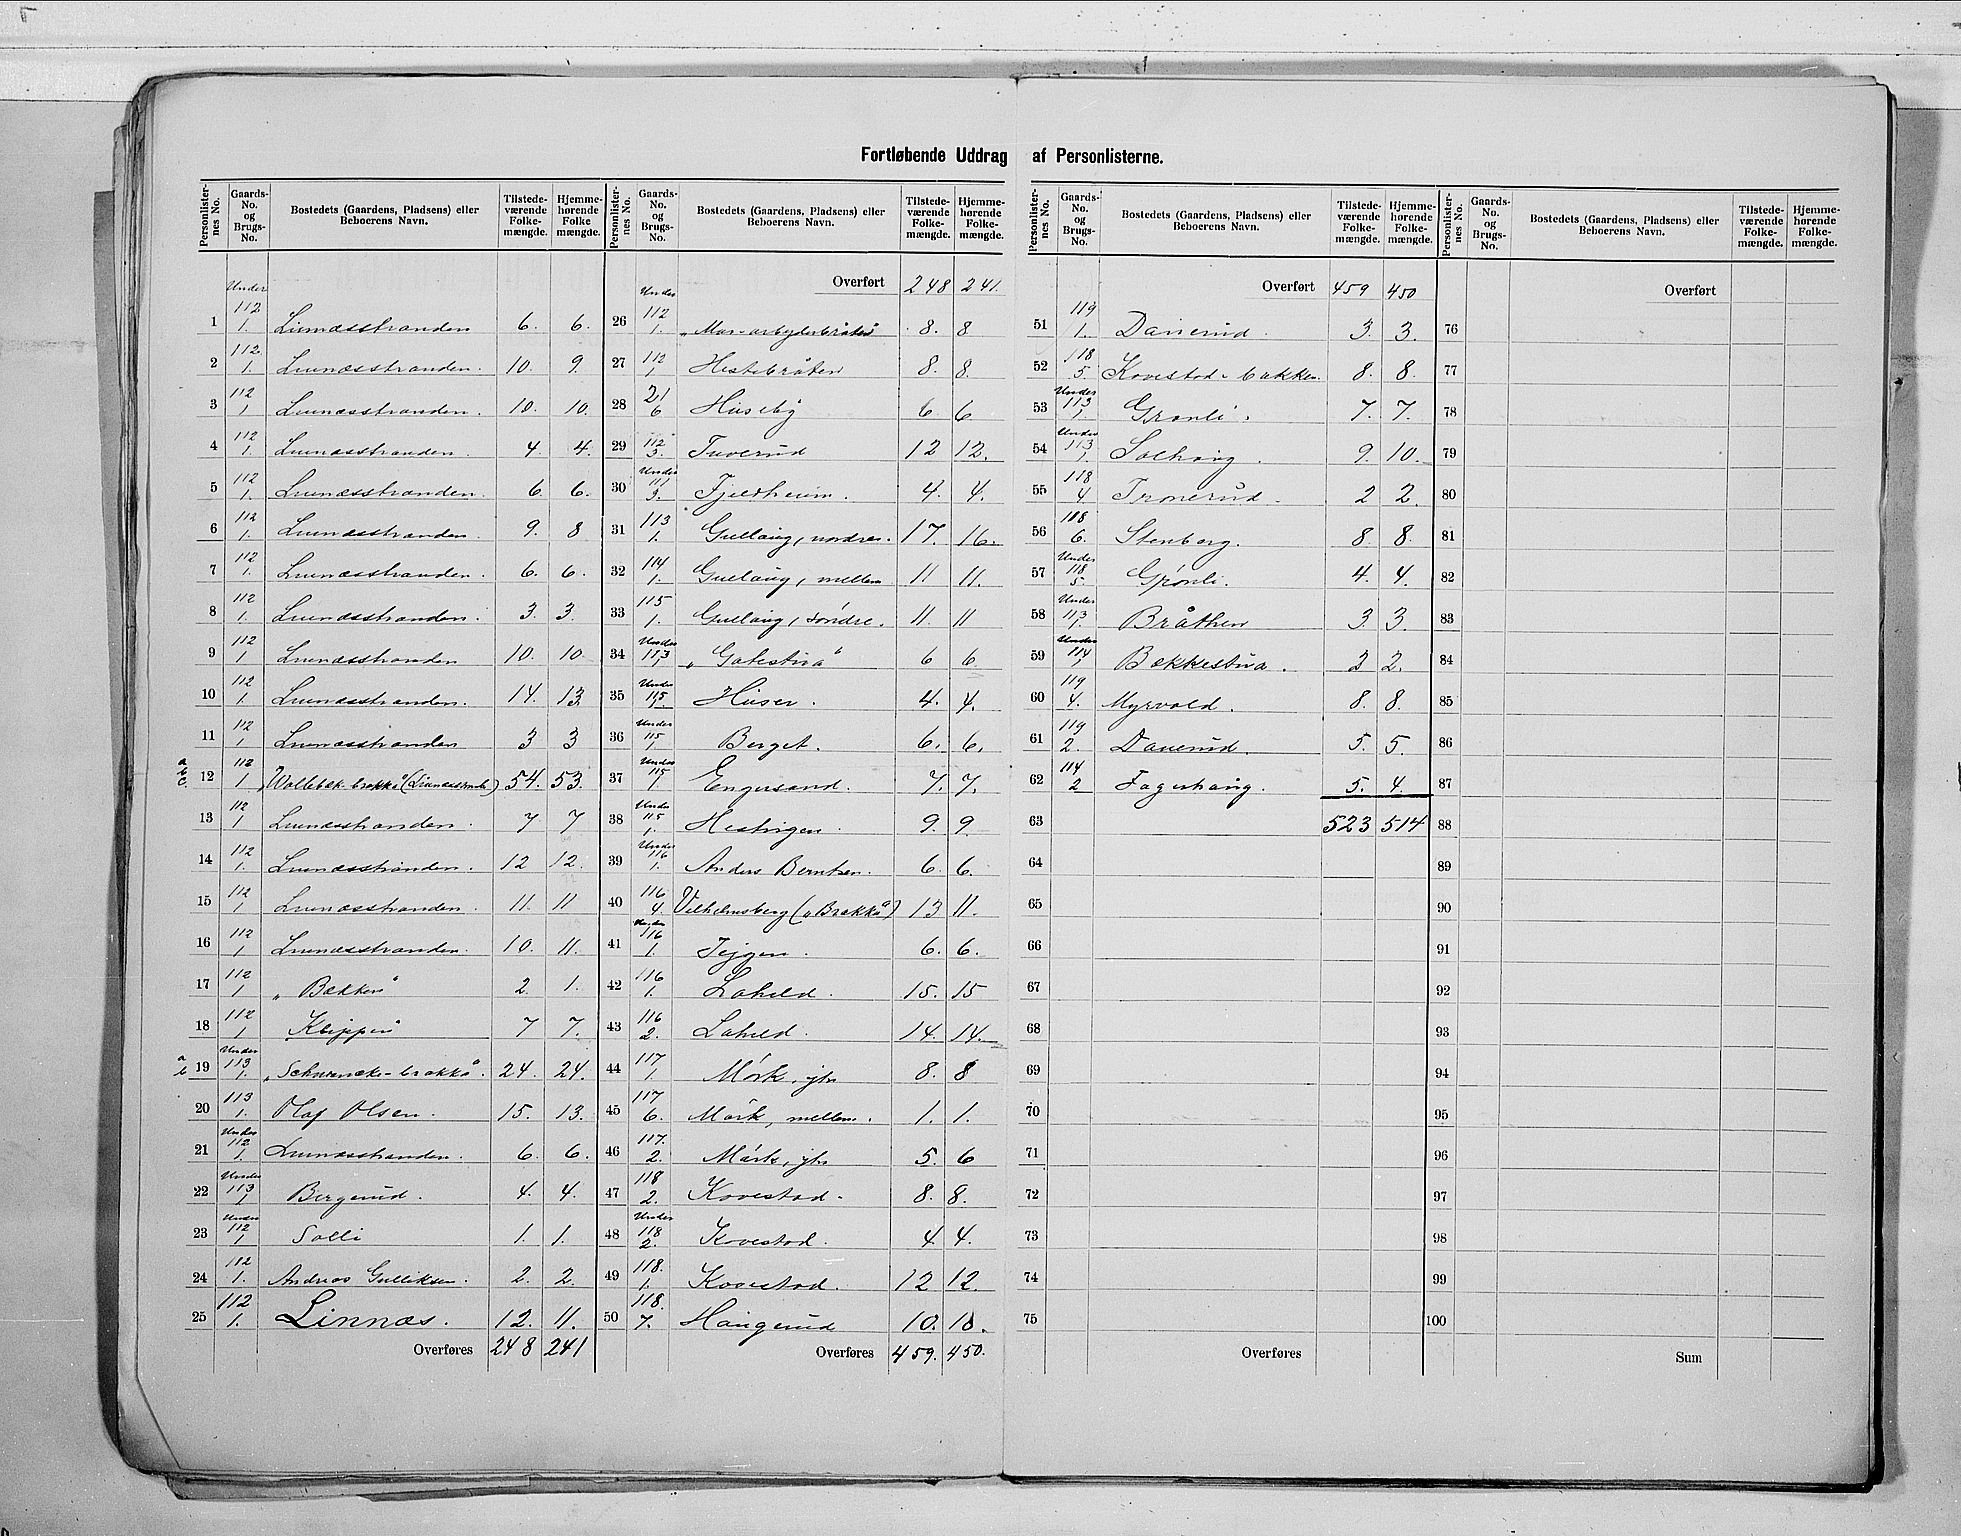 Fortløbende Uddrag af Personlisterne.
Personlister-nes No. | Gaards-No. og Brugs-No. | Bostedets (Gaardens, Pladsens) eller Beboerens Navn. | Tilstede-værende Folke-mængde. | Hjemme-hørende Folke mængde.
1 | Under 112 1. | Linnæsstranden | 6. | 6.
2 | 112. 1. | Linnæsstranden. | 10. | 9.
3 | 112 1 | Linnæsstranden. | 10. | 10.
4 | 112 1. | Linnæsstranden. | 4. | 4.
5 | 112 1. | Linnæsstranden. | 6. | 6.
6 | 112 1. | Linnæsstranden. | 9. | 8
7 | 112 1. | Linnæsstranden. | 6. | 6.
8 | 112 1. | Linnæsstranden. | 3. | 3.
9 | 112 1 | Linnæsstranden | 10. | 10.
10 | 112 1. | Linnæsstranden. | 14. | 13
11 | 112 1 | Linnæsstranden | 3 | 3
a b c. 12 | 112 1 | „Wollebæk-brakka“ (Linnæsstranden) | 54. | 53.
13 | 112 1 | Linnæsstranden. | 7 | 7
14 | 112 1. | Linnæsstranden. | 12 | 12.
15 | 112 1 | Linnæsstranden. | 11. | 11
16 | 112 1 | Linnæsstranden. | 10. | 11.
17 | 112 1 | „Bakken“ | 2. | 1.
18 | 112 1 | Klippen | 7 | 7.
a b 19 | Under 113 1. | „Schwencke-brakka“. | 24. | 24.
20 | 113 1. | Olaf Olsen. | 15. | 13.
21 | Under 112 1. | Linnæsstranden. | 6. | 6.
22 | Under 113 1 | Bergerud. | 4. | 4.
23 | Under 112 1 | Solli | 1. | 1.
24 | 112 1. | Andreas Gulliksen. | 2. | 2.
25 | 112 1. | Linnæs. | 12. | 11.
Overføres | 248 | 241
Personlister-nes No. | Gaards-No. og Brugs-No. | Bostedets (Gaardens, Pladsens) eller Beboerens Navn. | Tilstede-værende Folke-mængde. | Hjemme-hørende Folke-mængde.
Overført | 248 | 241.
26 | Under 112 1. | 8. | 8
27 | 112 1 | Hestebråten | 8. | 8.
28 | 21 6 | Huseby | 6 | 6
29 | 112 3. | Tuverud | 12 | 12.
30 | Under 111 3. | Fjeldheim. | 4. | 4.
31 | 113 1. | Gullaug, nordre. | 17. | 16.
32 | 114 1. | Gullaug, mellem | 11 | 11.
33 | 115 1. | Gullaug, søndre. | 11. | 11
34 | Under 113 1 | „Gatestua“ | 6 | 6
35 | Under 115 1. | Huser. | 4. | 4.
36 | Under 115 1. | Berget. | 6. | 6.
37 | Under 115 1. | Engersand. | 7. | 7.
38 | Under 115 1. | 9. | 9.
39 | Under 116 1. | Anders Berntsen. | 6. | 6.
40 | 116 4. | Vilhelmsberg („Brakka“) | 13 | 11.
41 | Under 116 1. | Tejgen. | 6. | 6.
42 | 116 1. | Lahell. | 15. | 15
43 | 116 2. | Lahell. | 14. | 14.
44 | 117 1. | Mørk, ytre | 8. | 8
45 | 117 6. | Mørk, mellem. | 1. | 1.
46 | 117. 2. | Mørk, ytre | 5. | 6
47 | 118 2. | Kovestad. | 8. | 8.
48 | Under 118 2. | Kovestad. | 4 | 4.
49 | 118. 1. | Kovestad. | 12 | 12.
50 | 118. 7. | Haugerud | 10. | 10.
Overføres | 459. | 450.
Personlister-nes No. | Gaards-No. og Brugs-No. | Bostedets (Gaardens, Pladsens) eller Beboerens Navn. | Tilstede-værende Folke-mængde. | Hjemme-hørende Folke-mængde.
Overført | 459 | 450
51 | 119 1. | Danerud. | 3. | 3.
52 | 118 5. | Kovestad-bakken. | 8. | 8.
53 | Under 113 1 | Grønli. | 7. | 7.
54 | Under 113 1. | Solhaug. | 9. | 10.
55 | 118 4 | Tronerud. | 2 | 2.
56 | 118 6. | Stenberg. | 8. | 8.
57 | Under 118 5. | Grønli. | 4. | 4.
58 | Under 113 1. | Bråthen | 3. | 3.
59 | Under 114 1 | Bekkestua. | 3 | 2.
60 | 119 4. | Myrvold. | 8. | 8.
61 | 119 2. | Danerud. | 5. | 5.
62 | 114 2 | Fagerhaug. | 5. | 4.
63 | 523 | 514
64
65
66
67
68
69
70
71
72
73
74
75
Overføres
Personlister-nes No. | Gaards-No. og Brugs-No. | Bostedets (Gaardens, Pladsens) eller Beboerens Navn. | Tilstede-værende Folke-mængde. | Hjemme-hørende Folke-mængde.
Overført
76
77
78
79
80
81
82
83
84
85
86
87
88
89
90
91
92
93
94
95
96
97
98
99
100
Sum